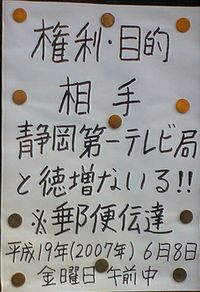 権利・目的
相手
静岡第一テレビ局
と徳増ないる!!
※郵便伝達
平成19年(2007年) 6月8日
金曜日 午前中